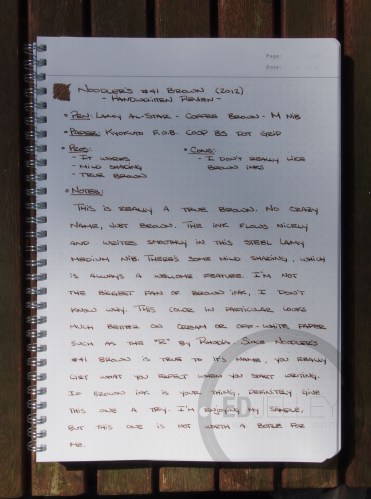 Page:
Date:
Noodler's #41 Brown (2012)
- Handwritten Review -
• Pen: Lamy Al-Star - Coffee Brown - M Nib
• Paper: Kyokuto F.O.B. COOP B5 Dot Grid
• Pros: • Cons:
- It works - I don't really like
- Mild shading brown inks
- True brown
• Notes:
This is really a true brown. No crazy
name, just brown. The ink flows nicely
and writes smoothly in this steel Lamy
medium nib. There's some mild shading, which
is always a welcome feature. I'm not
the biggest fan of brown ink, I don't
know why. This color in particular looks
much better on cream or off-white paper
such as the "R" by Rhodia. Since Noodler's
#41 Brown is true to it's name, you really
get what you expect when you start writing.
If brown ink is your thing, definitely give
this one a try. I'm enjoying my sample,
but this one is not worth a bottle for
me.